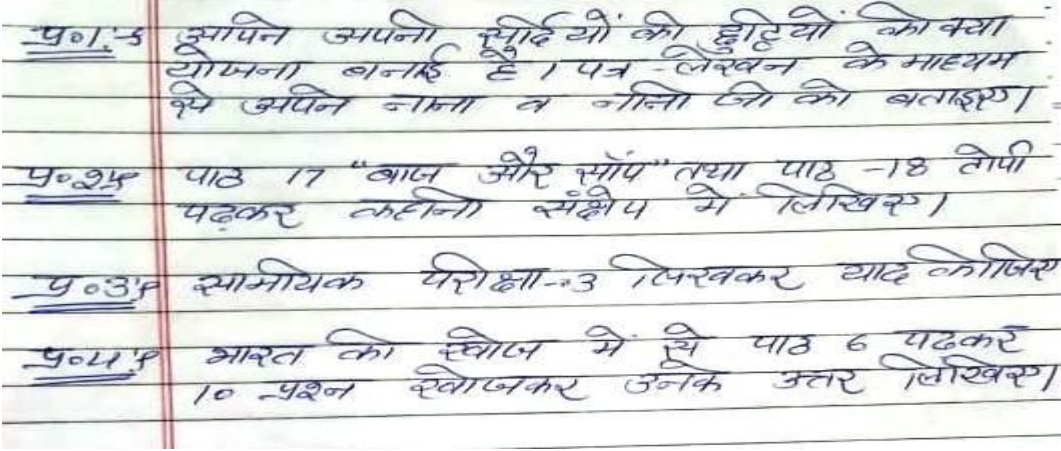 प्र०1.- आपने अपनी सर्दियों की छुट्टियों की क्या
योजना बनाई है। पत्र-लेखन के माध्यम
से अपने नाना व नानी जी को बताइए।
प्र०2- पाठ 17 "बाज और साँप" तथा पाठ -18 टोपी
पढ़कर कहानी संक्षेप में लिखिए।
प्र०3- सामयिक परीक्षा-3 लिखकर याद कीजिए
प्र०4- भारत की खोज में से पाठ 6 पढ़कर
10 प्रश्न खोजकर उनके उत्तर लिखिए।